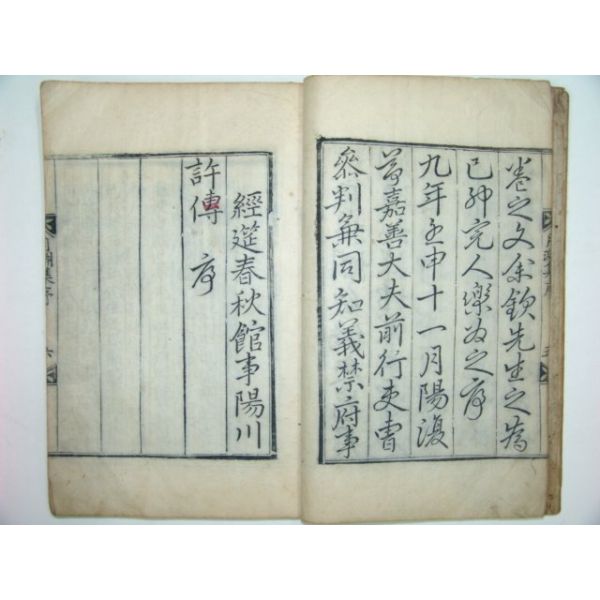 卷之文余欽先生之為
己卯完人樂為之序
九年壬申十一月陽復
節嘉善大夫前行吏曺
叅判兼同知義禁府事
經筵春秋館事陽川
許傳 序
集序 六